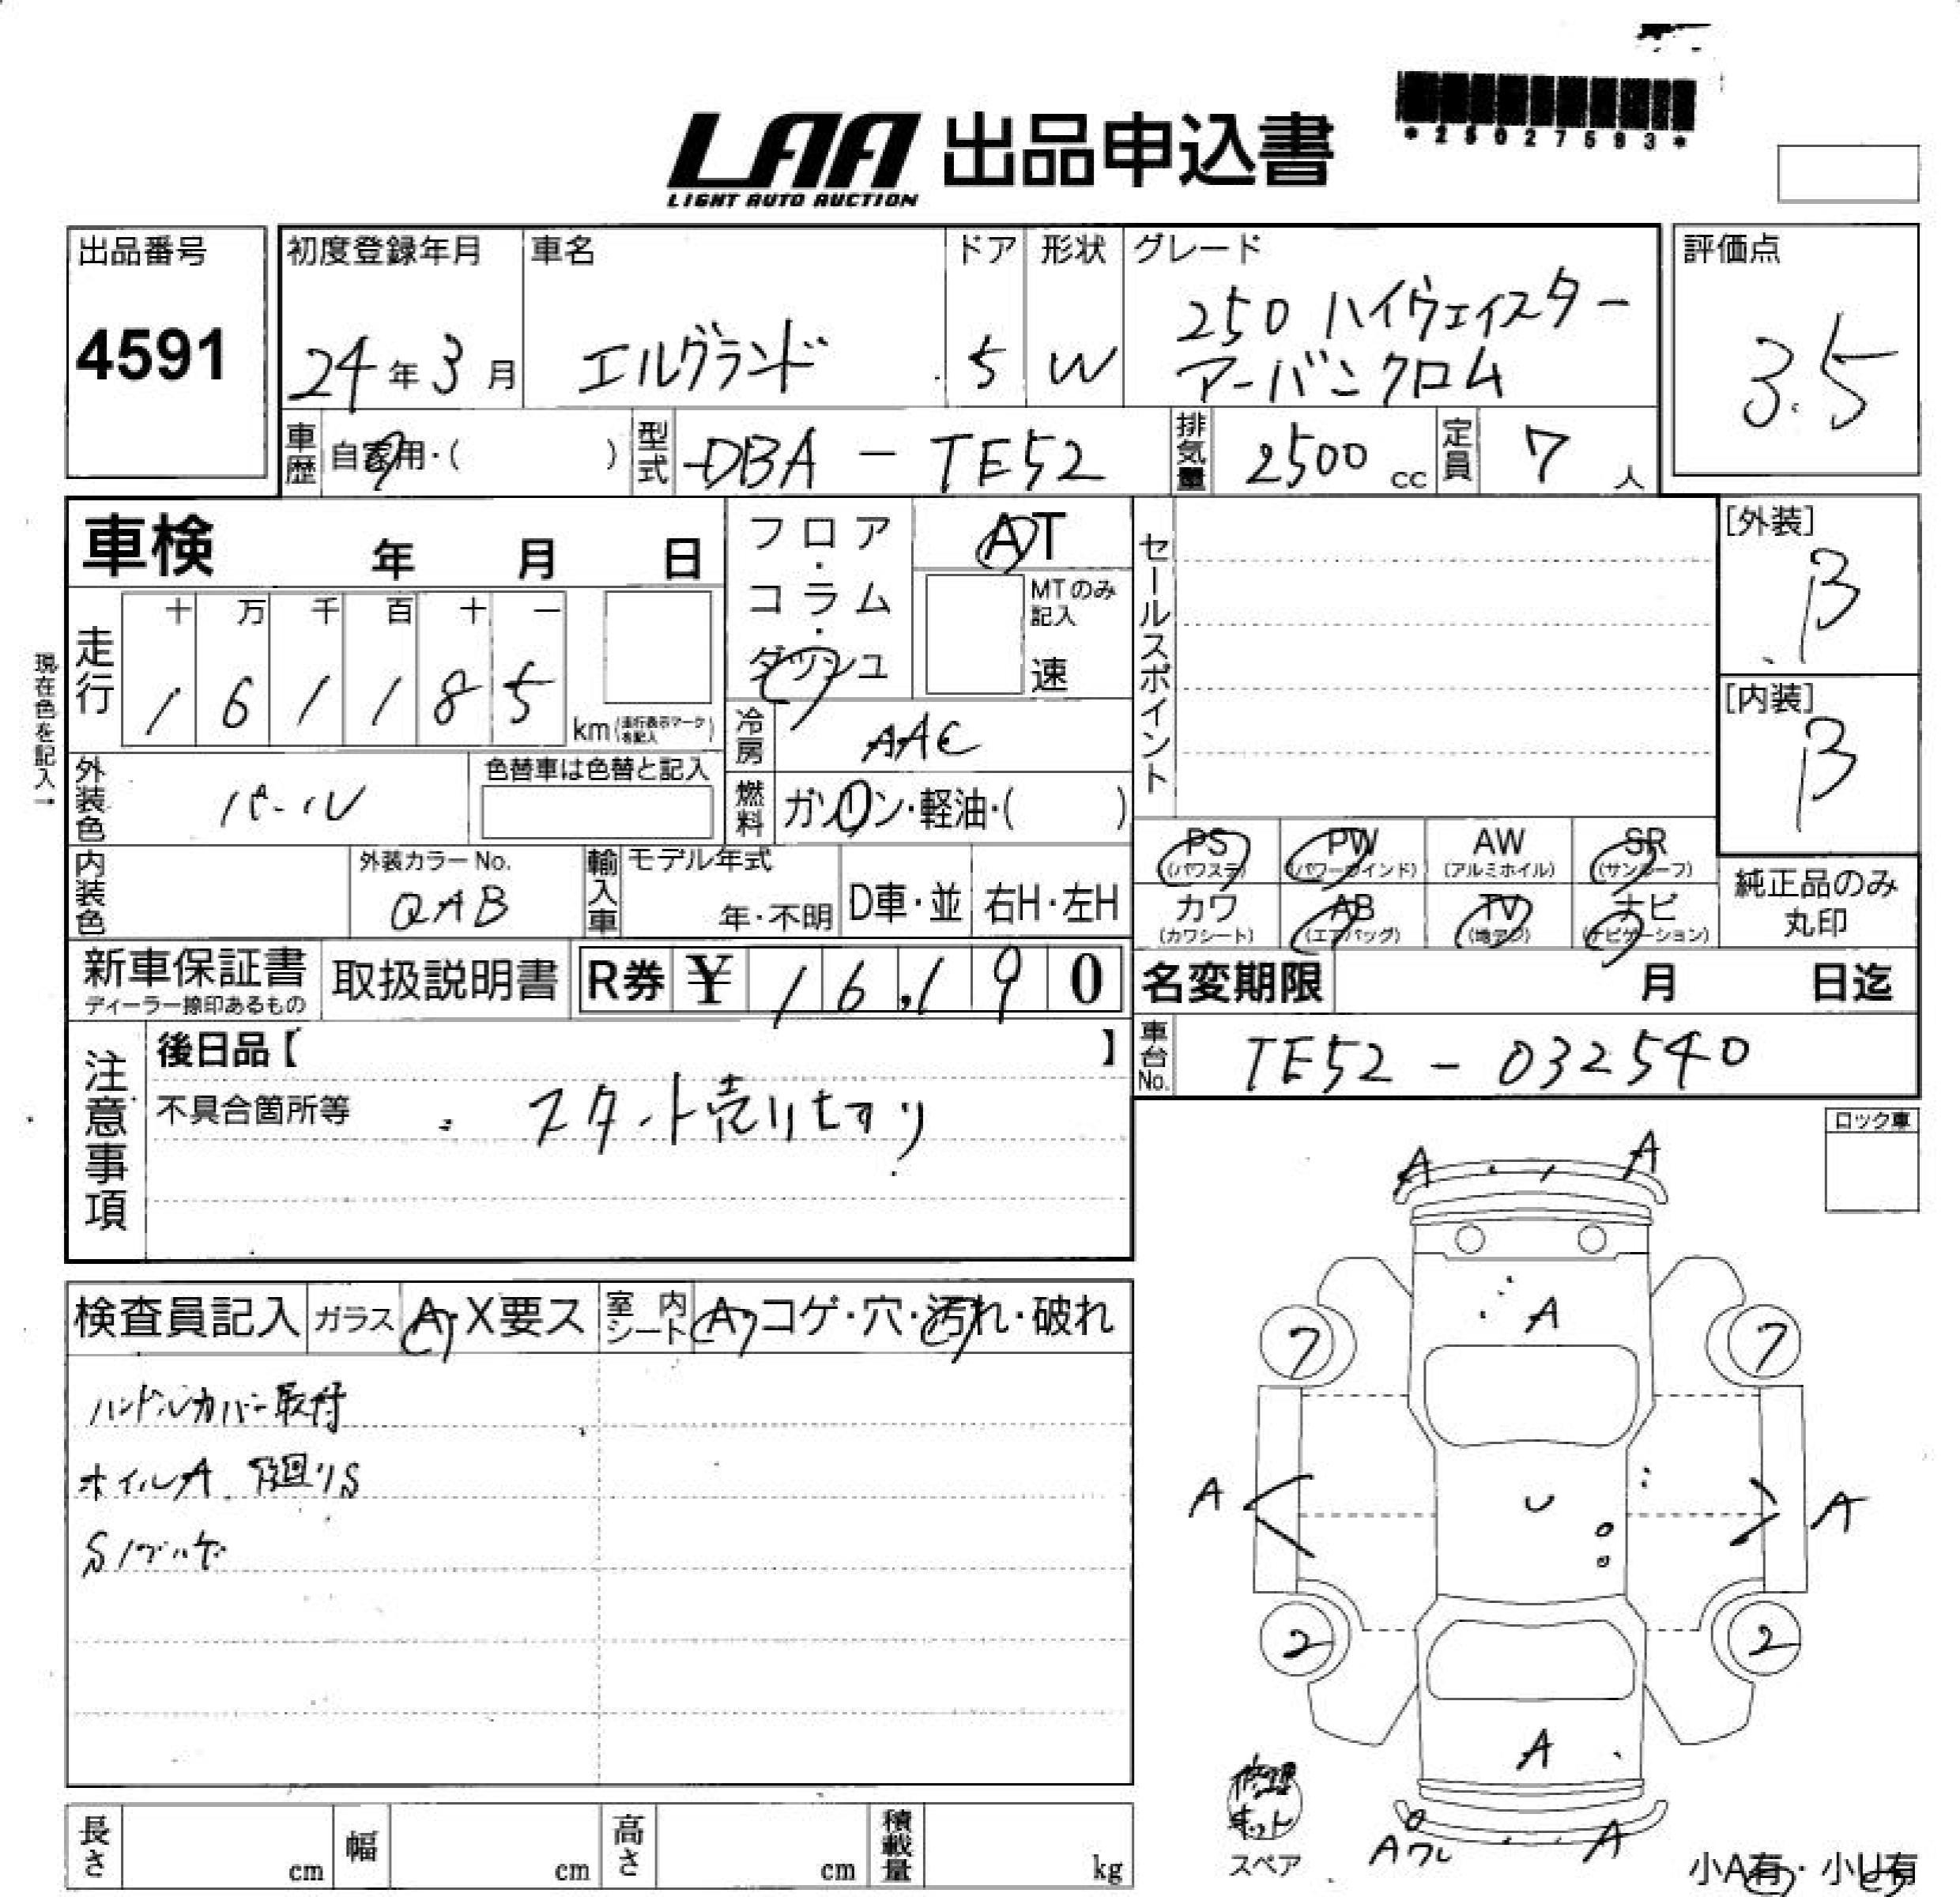 LAA 出品申込書
LIGHT AUTO AUCTION
*25027593*
出品番号
4591
初度登録年月
24年3月
車名
エルグランド
ドア
5
形状
W
グレード
250 ハイウェイスター
アーバンクロム
評価点
3.5
車歴
自家用・( )
型式
DBA - TE52
排気量
2500 cc
定員
7人
車検 年 月 日
フロア・コラム・ダッシュ
AT
MTのみ記入
速
セールスポイント
[外装]
B
[内装]
B
現在色を記入→
走行
十 万 千 百 十 一
1 6 1 1 8 5
km(走行表示マークを記入)
冷房
AAC
外装色
パール
色替車は色替と記入
燃料
ガソリン・軽油・( )
内装色
外装カラーNo.
QAB
輸入車
モデル年式
年・不明
D車・並
右H・左H
PS
(パワステ)
PW
(パワーウインド)
AW
(アルミホイル)
SR
(サンルーフ)
カワ
(カワシート)
AB
(エアバッグ)
TV
(地デジ)
ナビ
(ナビゲーション)
純正品のみ
丸印
新車保証書
ディーラー捺印あるもの
取扱説明書
R券 ¥ 16,190
名変期限 月 日迄
車台No.
TE52 - 032540
注意事項
後日品【 】
不具合箇所等
スタート売り切り
ロック車
検査員記入
ガラス
A・X要ス
室内シート
A・コゲ・穴・汚れ・破れ
ハンドルカバー取付
ホイルA 下廻りS
A A
A
7 7
A U A
2 2
A
A ワレ A
修理キット
スペア
小A有・小U有
長さ cm
幅 cm
高さ cm
積載量 kg